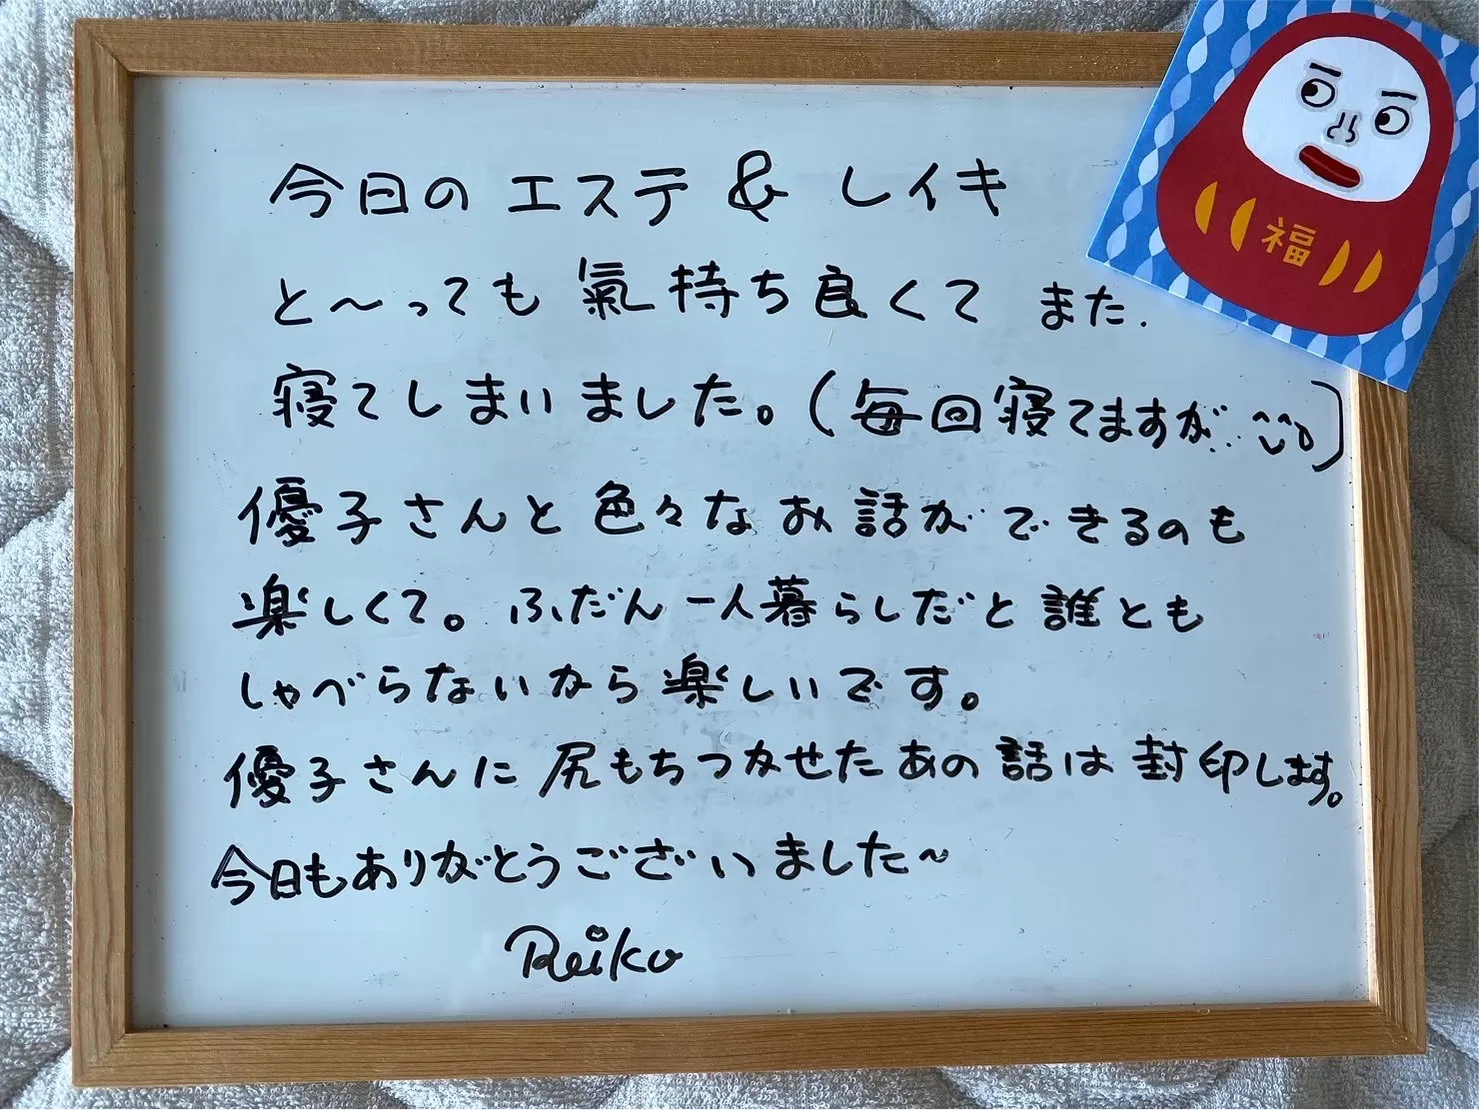 今日の エステ & レイキ
と〜っても 氣持ち良くて また.
寝てしまいました。(毎回寝てますが…^^;)
優子さんと色々なお話ができるのも
楽しくて。ふだん一人暮らしだと誰とも
しゃべらないから楽しいです。
優子さんに尻もちつかせたあの話は封印します。
今日もありがとうございました〜
Reiko
福